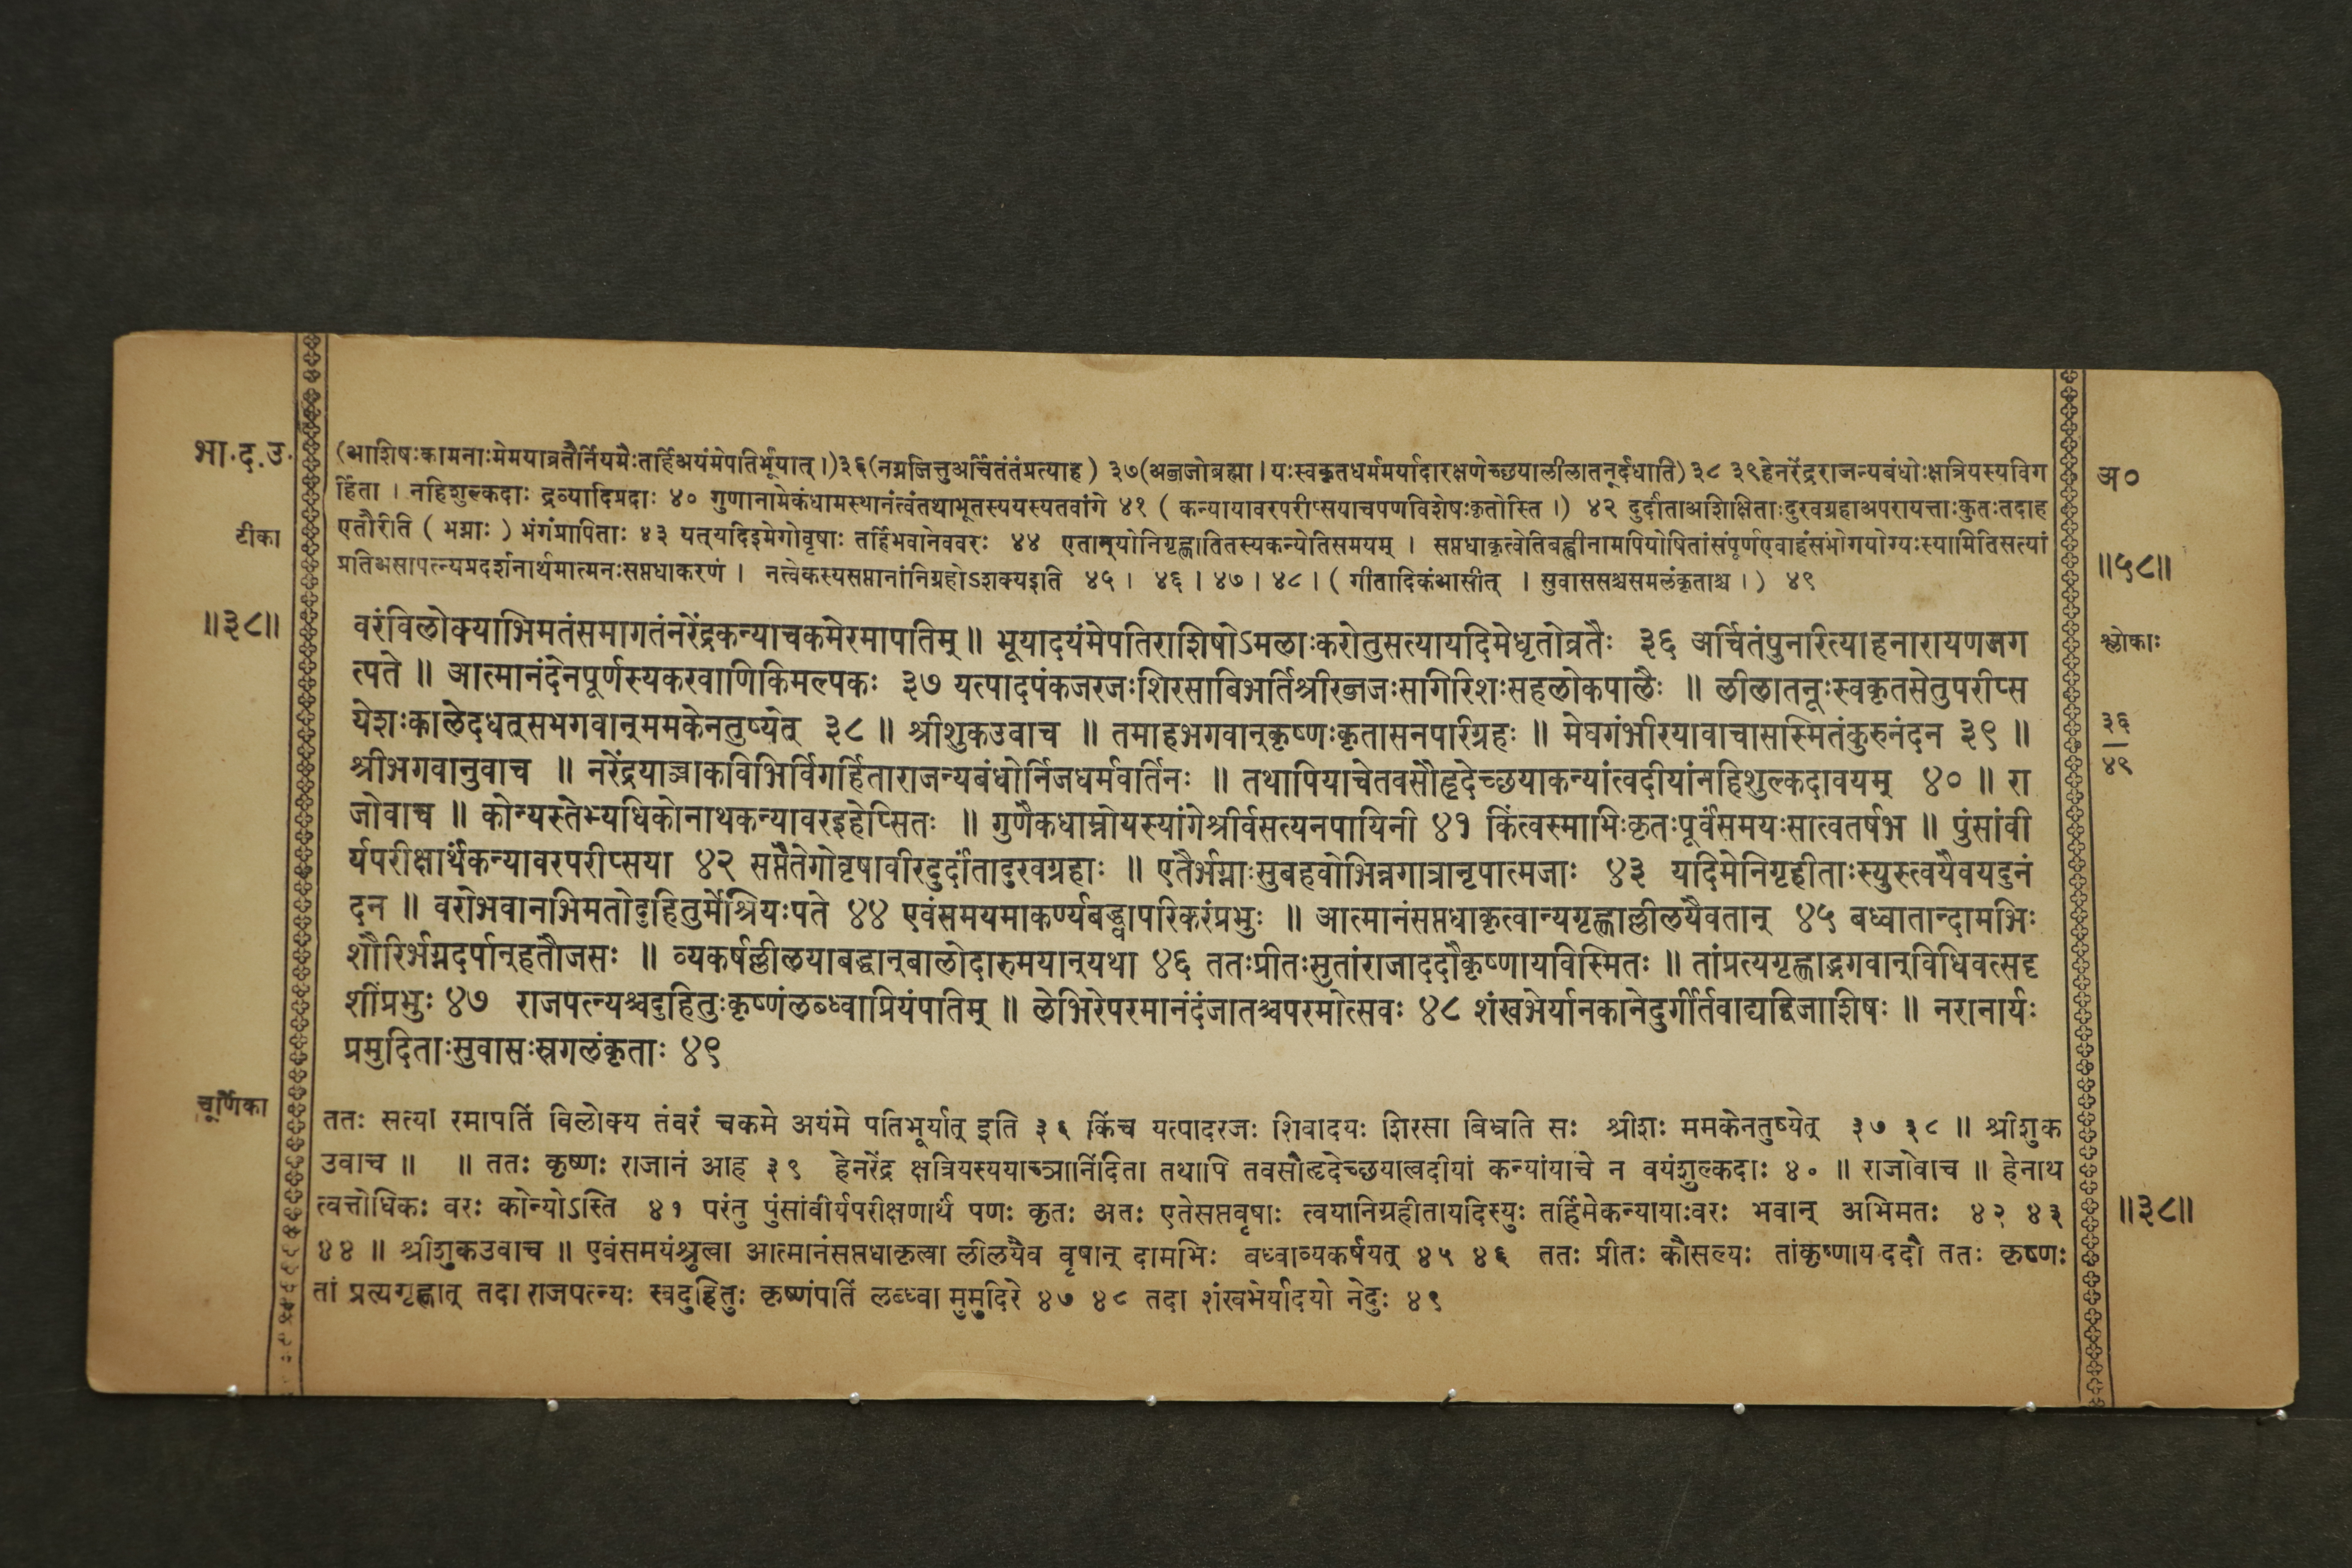 भा.द.उ.
(आशिषःकामनाःमेमयाव्रतैर्नियमैःतर्हिअयंमेपतिर्भूयात् ।)३६(नग्नजित्तुअर्चितंतंप्रत्याह) ३७(अब्जजोब्रह्मा । यःस्वकृतधर्ममर्यादारक्षणेच्छयालीलातनूर्दधाति)३८ ३९हेनरेंद्रराजन्यबंधोःक्षत्रियस्यविग
अ०
र्हिता । नहिशुल्कदाः द्रव्यादिप्रदाः ४० गुणानामेकंधामस्थानंत्वंतथाभूतस्ययस्यतवांगे ४१ ( कन्यायावरपरीप्सयाचपणविशेषःकृतोस्ति ।) ४२ दुर्दांताअशिक्षिताःदुरवग्रहाअपरायत्ताःकुतःतदाह
टीका
एतैरिति ( भग्नाः ) भंगंप्रापिताः ४३ यत्यदिइमेगोवृषाः तर्हिभवानेववरः ४४ एतान्योनिगृह्णातितस्यकन्येतिसमयम् । सप्तधाकृत्वेतिबह्वीनामपियोषितांसंपूर्णएवाहंसंभोगयोग्यःस्यामितिसत्यां
॥५८॥
प्रतिअसापत्न्यप्रदर्शनार्थमात्मनःसप्तधाकरणं । नत्वेकस्यसप्तानांनिग्रहोऽशक्यइति ४५ । ४६ । ४७ । ४८ । ( गीतादिकंआसीत् । सुवाससश्चसमलंकृताश्च ।) ४९
॥३८॥
वरंविलोक्याभिमतंसमागतंनरेंद्रकन्याचकमेरमापतिम् ॥ भूयादयंमेपतिराशिषोऽमलाःकरोतुसत्यायदिमेधृतोव्रतैः ३६ अर्चितंपुनरित्याहनारायणजग
श्लोकाः
त्पते ॥ आत्मानंदेनपूर्णस्यकरवाणिकिमल्पकः ३७ यत्पादपंकजरजःशिरसाबिभर्तिश्रीरब्जजःसगिरिशःसहलोकपालैः ॥ लीलातनूःस्वकृतसेतुपरीप्स
येशःकालेदधत्सभगवान्ममकेनतुष्येत् ३८ ॥ श्रीशुकउवाच ॥ तमाहभगवान्कृष्णःकृतासनपरिग्रहः ॥ मेघगंभीरयावाचासस्मितंकुरुनंदन ३९ ॥
३६
४९
श्रीभगवानुवाच ॥ नरेंद्रयाञ्चाकविभिर्विगर्हिताराजन्यबंधोर्निजधर्मवर्तिनः ॥ तथापियाचेतवसौहृदेच्छयाकन्यांत्वदीयांनहिशुल्कदावयम् ४० ॥ रा
जोवाच ॥ कोन्यस्तेभ्यधिकोनाथकन्यावरइहेप्सितः ॥ गुणैकधाम्नोयस्यांगेश्रीर्वसत्यनपायिनी ४१ किंत्वस्माभिःकृतःपूर्वंसमयःसात्वतर्षभ ॥ पुंसांवी
र्यपरीक्षार्थंकन्यावरपरीप्सया ४२ सप्तैतेगोवृषावीरदुर्दांतादुरवग्रहाः ॥ एतैर्भग्नाःसुबहवोभिन्नगात्रानृपात्मजाः ४३ यदिमेनिगृहीताःस्युस्त्वयैवयदुनं
दन ॥ वरोभवानभिमतोदुहितुर्मेश्रियःपते ४४ एवंसमयमाकर्ण्यबद्ध्वापरिकरंप्रभुः ॥ आत्मानंसप्तधाकृत्वान्यगृह्णाल्लीलयैवतान् ४५ बध्वातान्दामभिः
शौरिर्भग्नदर्पान्हतौजसः ॥ व्यकर्षल्लीलयाबद्धान्बालोदारुमयान्यथा ४६ ततःप्रीतःसुतांराजाददौकृष्णायविस्मितः ॥ तांप्रत्यगृह्णाद्भगवान्विधिवत्सदृ
शींप्रभुः ४७ राजपत्न्यश्चदुहितुःकृष्णंलब्ध्वाप्रियंपतिम् ॥ लेभिरेपरमानंदंजातश्चपरमोत्सवः ४८ शंखभेर्यानकानेदुर्गीतवाद्यद्विजाशिषः ॥ नरानार्यः
प्रमुदिताःसुवासःस्रगलंकृताः ४९
चूर्णिका
ततः सत्या रमापतिं विलोक्य तंवरं चकमे अयंमे पतिभूर्यात् इति ३६ किंच यत्पादरजः शिवादयः शिरसा बिभ्रति सः श्रीशः ममकेनतुष्येत् ३७ ३८ ॥ श्रीशुक
उवाच ॥ ॥ ततः कृष्णः राजानं आह ३९ हेनरेंद्र क्षत्रियस्ययाच्ञानिंदिता तथापि तवसौहृदेच्छयात्वदीयां कन्यांयाचे न वयंशुल्कदाः ४० ॥ राजोवाच ॥ हेनाथ
त्वत्तोधिकः वरः कोन्योऽस्ति ४१ परंतु पुंसांवीर्यपरीक्षणार्थं पणः कृतः अतः एतेसप्तवृषाः त्वयानिग्रहीतायदिस्युः तर्हिमेकन्यायाःवरः भवान् अभिमतः ४२ ४३
॥३८॥
४४ ॥ श्रीशुकउवाच ॥ एवंसमयंश्रुत्वा आत्मानंसप्तधाकृत्वा लीलयैव वृषान् दामभिः बध्वाव्यकर्षयत् ४५ ४६ ततः प्रीतः कौसल्यः तांकृष्णाय ददौ ततः कृष्णः
तां प्रत्यगृह्णात् तदा राजपत्न्यः स्वदुहितुः कृष्णंपतिं लब्ध्वा मुमुदिरे ४७ ४८ तदा शंखभेर्यादयो नेदुः ४९